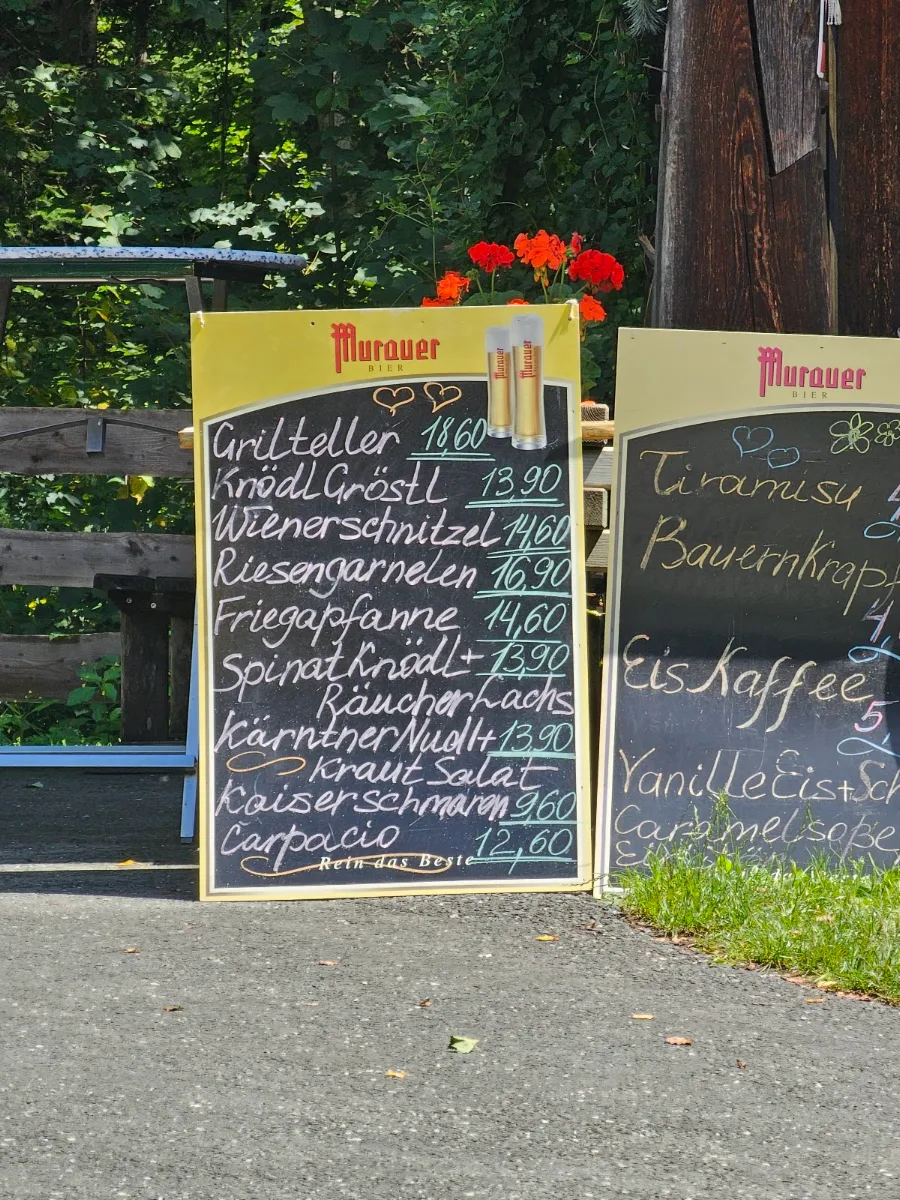 Murauer
BIER
Murauer
Murauer
Grilteller 18,60
Knödl Gröstl 13,90
Wienerschnitzel 14,60
Riesengarnelen 16,90
Friegapfanne 14,60
Spinat Knödl + 13,90
Räucherlachs
Kärntner Nudl + 13,90
Kraut Salat
Kaiserschmaren 9,60
Carpacio 12,60
Rein das Beste
Murauer
BIER
Tiramisu
Bauernkrapf
Eis Kaffee
5
Vanille Eis + Sch
Caramelsoße